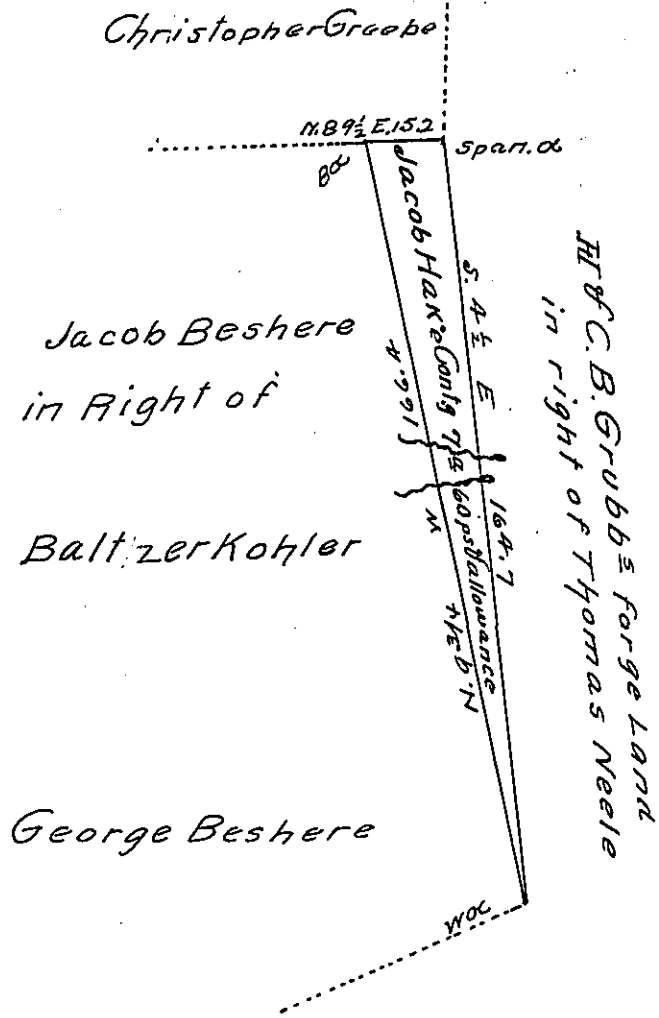 Christopher Greebe
N.89½ E.15.2
Span.o
Bo
Jacob Hake Contg 7a 60ps & allowance
S. 4½ E 164.7
N. 9¾ W 166.4
Jacob Beshere
in Right of
Baltzer Kohler
George Beshere
C.B. Grubbs forge Land
in right of Thomas Neele
WO